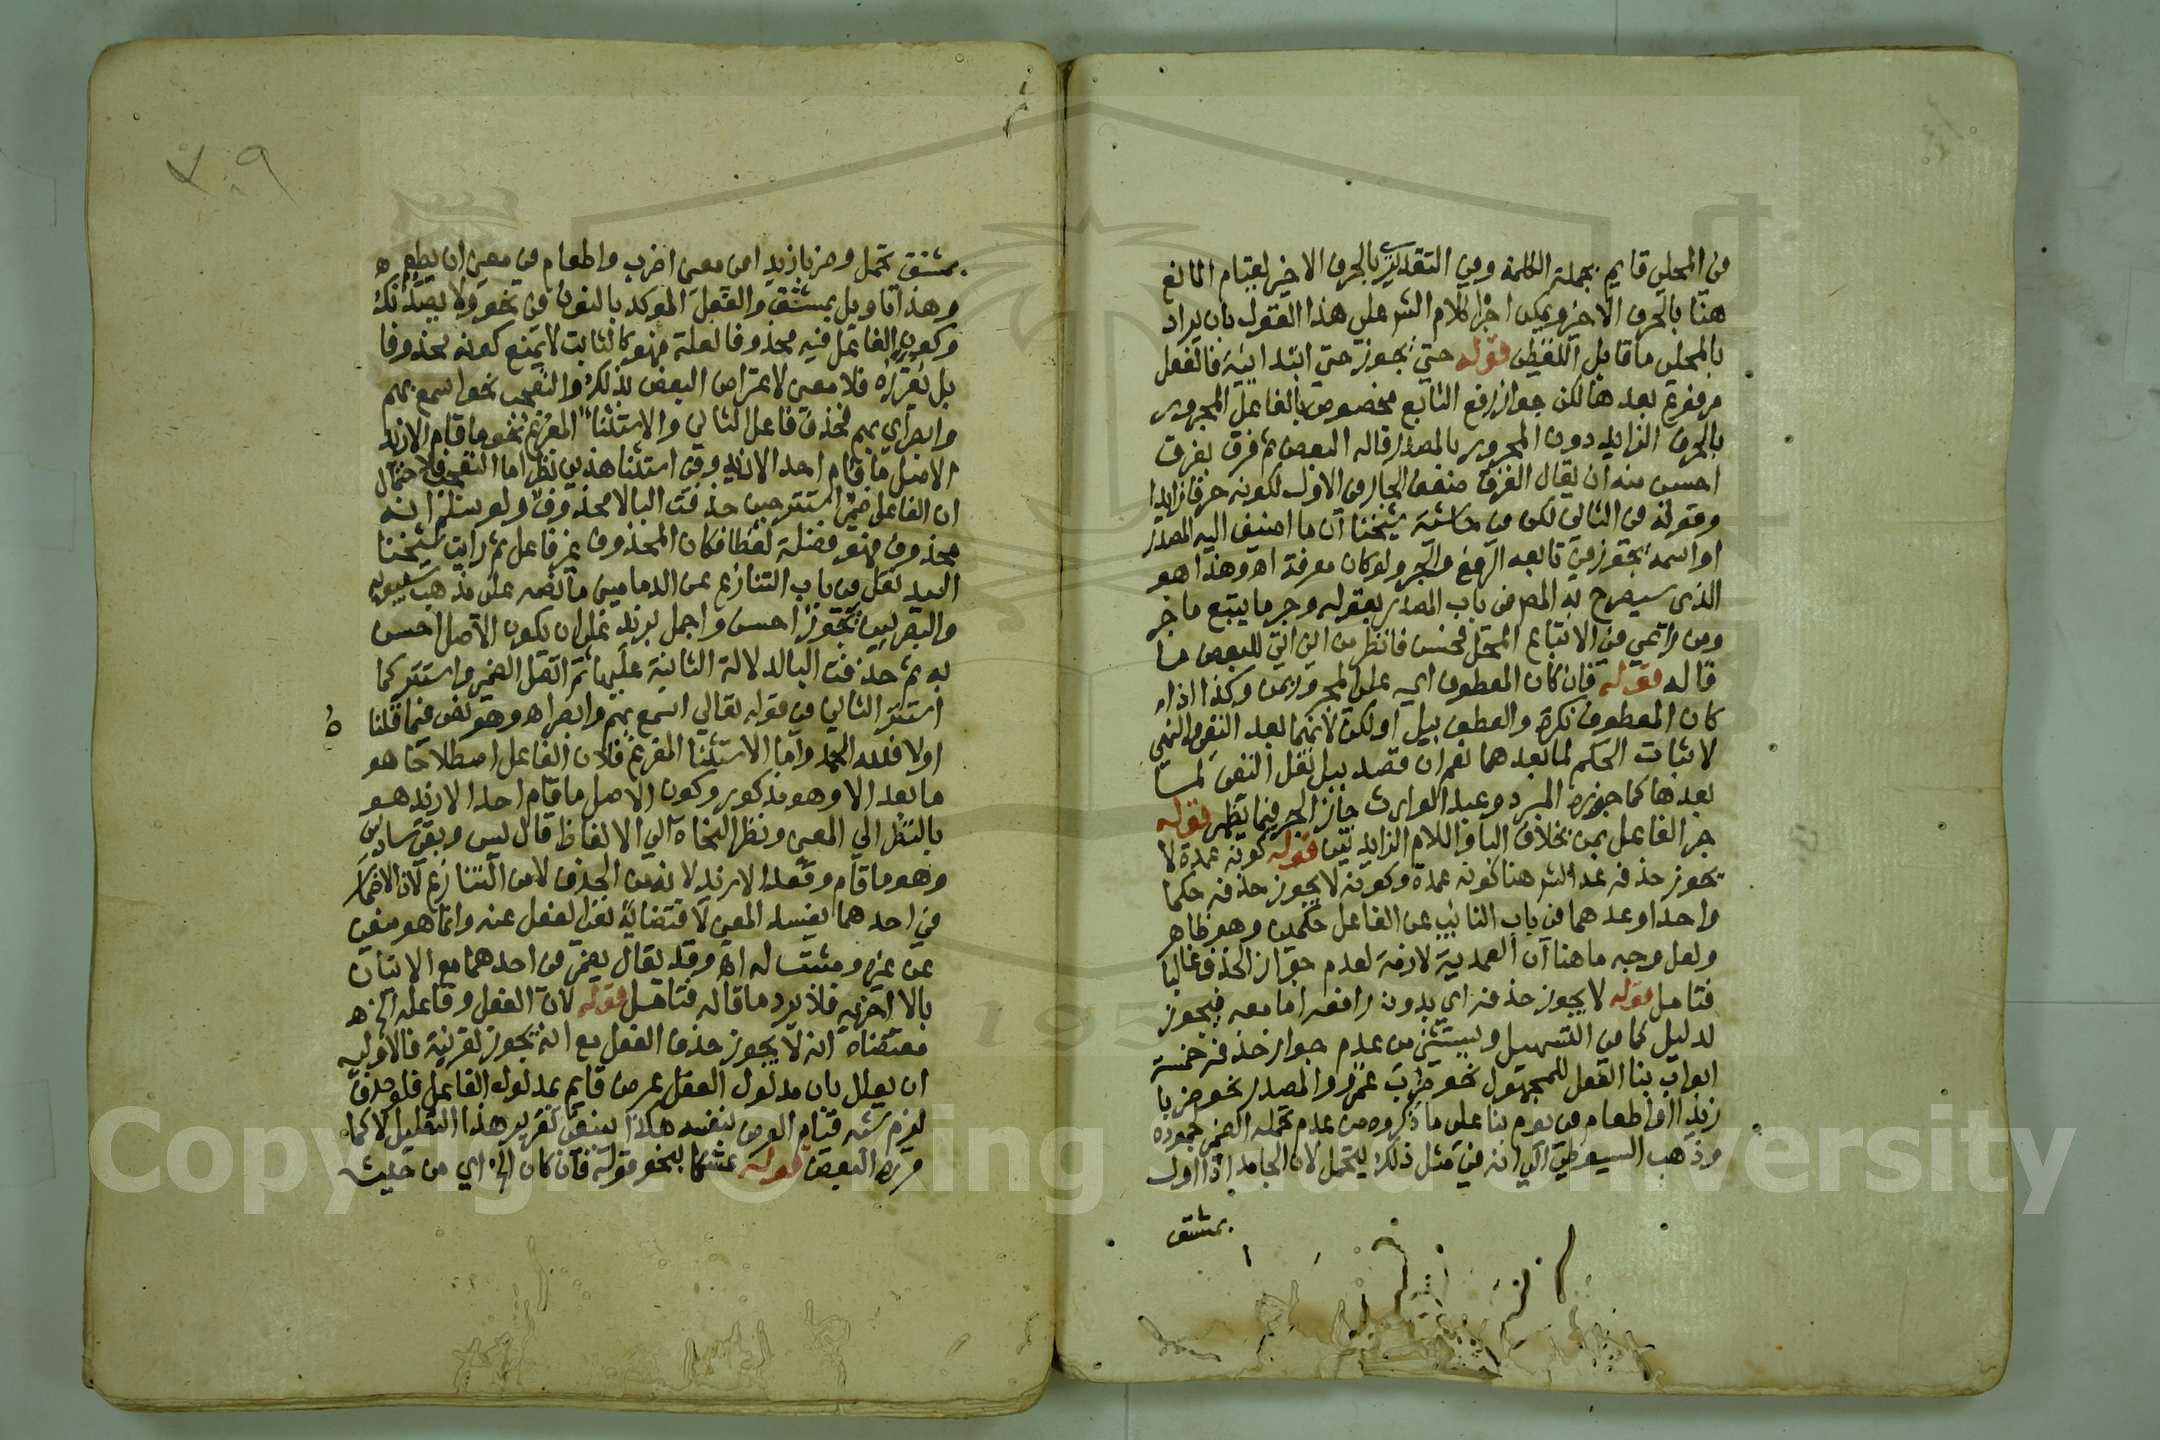 في المحلي قايم بجملة الكلمة وفي التقديري بالحرف الاخير لقيام المانع
هنا بالحرف الاخر ويمكن اجرا كلام الشر على هذا القول بان يراد
بالمحلي ما قابل اللفظي قوله حتى يجوز حتى ابتدايية فالفعل
مرفوع بعدها لكن جواز رفع التابع مخصوص بالفاعل المجرور
بالحرف الزايد دون المجرور بالمصدر قاله البعض ثم فرق بفرق
احسن منه ان يقال الفرق ضعف الجار في الاول لكونه حرفا زايدا
وقوته في الثاني لكن في حاشية شيخنا ان ما اضيف اليه المصدر
او اسمه يجوز في تابعه الرفع والجر ولو كان معرفة اه وهذا هو
الذي سيصرح به المص في باب المصدر بقوله وجر ما يتبع ما جر
ومن راعى في الاتباع المحل فحسن فانظر من اين اتى للبعض ما
قاله قوله فان كان المعطوف اي على المجرور بمن وكذا اذا
كان المعطوف نكرة والعطف ببل او لكن لانهما بعد النفي والنهي
لاثبات الحكم لما بعدهما نعم ان قصد ببل نقل النفي لما
بعدها كما جوزه المبرد وعبد الوارث جاز الجر فيما يظهر قوله
جر الفاعل بمن بخلاف البا واللام الزايدتين قوله كونه عمدة لا
يجوز حذفه عد الشر هنا كونه عمدة وكونه لا يجوز حذفه حكما
واحدا وعدهما في باب النائب عن الفاعل حكمين وهو ظاهر
ولعل وجه ما هنا ان العمدية لازمة لعدم جواز الحذف غالبا
فتامل قوله لا يجوز حذفه اي بدون رافعه اما معه فيجوز
لدليل كما في التسهيل ويستثنى من عدم جواز حذفه خمسة
ابواب بنا الفعل للمجهول نحو ضرب عمرو والمصدر نحو ضربا
زيدا او اطعام في يوم بنا على ما ذكروه من عدم تحمله الضمير لجموده
وذهب السيوطي الى انه في مثل ذلك يتحمل لان الجامد اذا اول
بمشتق
٢٠٩
بمشتق تحمل وضربا زيدا في معنى اضرب واطعام في معنى ان يطعم
وهذا تاويل بمشتق والفعل الموكد بالنون في نحو ولا يصدنك
وكون الفاعل فيه محذوفا لعلة فهو كالثابت لا يمنع كونه محذوفا
بل يقرره فلا معنى لاعتراض البعض بذلك والتعجب نحو اسمع بهم
وابصر اي بهم فحذف فاعل الثاني والاستثنا المفرغ نحو ما قام الا زيد
الاصل ما قام احد الا زيد وفي استثنا هذين نظر اما التعجب فلاحتمال
ان الفاعل ضمير استتر حين حذفت البا لا محذوف ولو سلم انه
محذوف فهو فضلة لفظا فكان المحذوف غير فاعل ثم رايت شيخنا
السيد نقل في باب التنازع عن الدماميني ما نصه على مذهب سيبويه
والبصريين يجوز احسن واجمل بزيد على ان يكون الاصل احسن
به ثم حذفت البا لدلالة الثانية عليها ثم اتصل الضمير واستتر كما
استتر الثاني في قوله تعالى اسمع بهم وابصر اه وهو نص فيما قلنا
اولا فلله الحمد واما الاستثنا المفرغ فلان الفاعل اصطلاحا هو
ما بعد الا وهو مذكور وكون الاصل ما قام احد الا زيد هو
بالنظر الى المعنى ونظر النحاة الى الالفاظ قال يس وبقي سادس
وهو ما قام وقعد الا زيد لانه من الحذف لا من التنازع لان الاضمار
في احدهما يفسد المعنى لاقتضايه نفي الفعل عنه وانما هو منفي
عن غيره ومثبت له اه وقد يقال يضمر في احدهما مع الاتيان
بالا اخرى فلا يرد ما قاله فتامل قوله لان الفعل وفاعله الخ
مقتضاه انه لا يجوز حذف الفعل مع انه يجوز لقرينة فالاولى
ان يعلل بان مدلول الفعل عرض قايم بمدلول الفاعل فلو حذف
لزم شبه قيام العرض بنفسه هكذا ينبغي تقرير هذا التعليل لا كما
قرره البعض قوله متمسكا بنحو قوله فان كان الخ اي من حيث